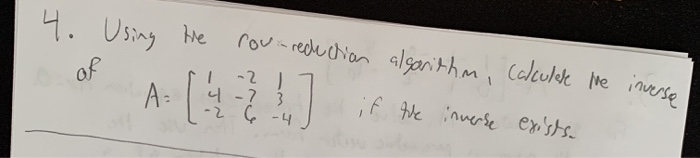 4. Using the row-reduction algorithm, calculate the inverse
of A = [1 -2 1
4 -7 3
-2 6 -4] if the inverse exists.